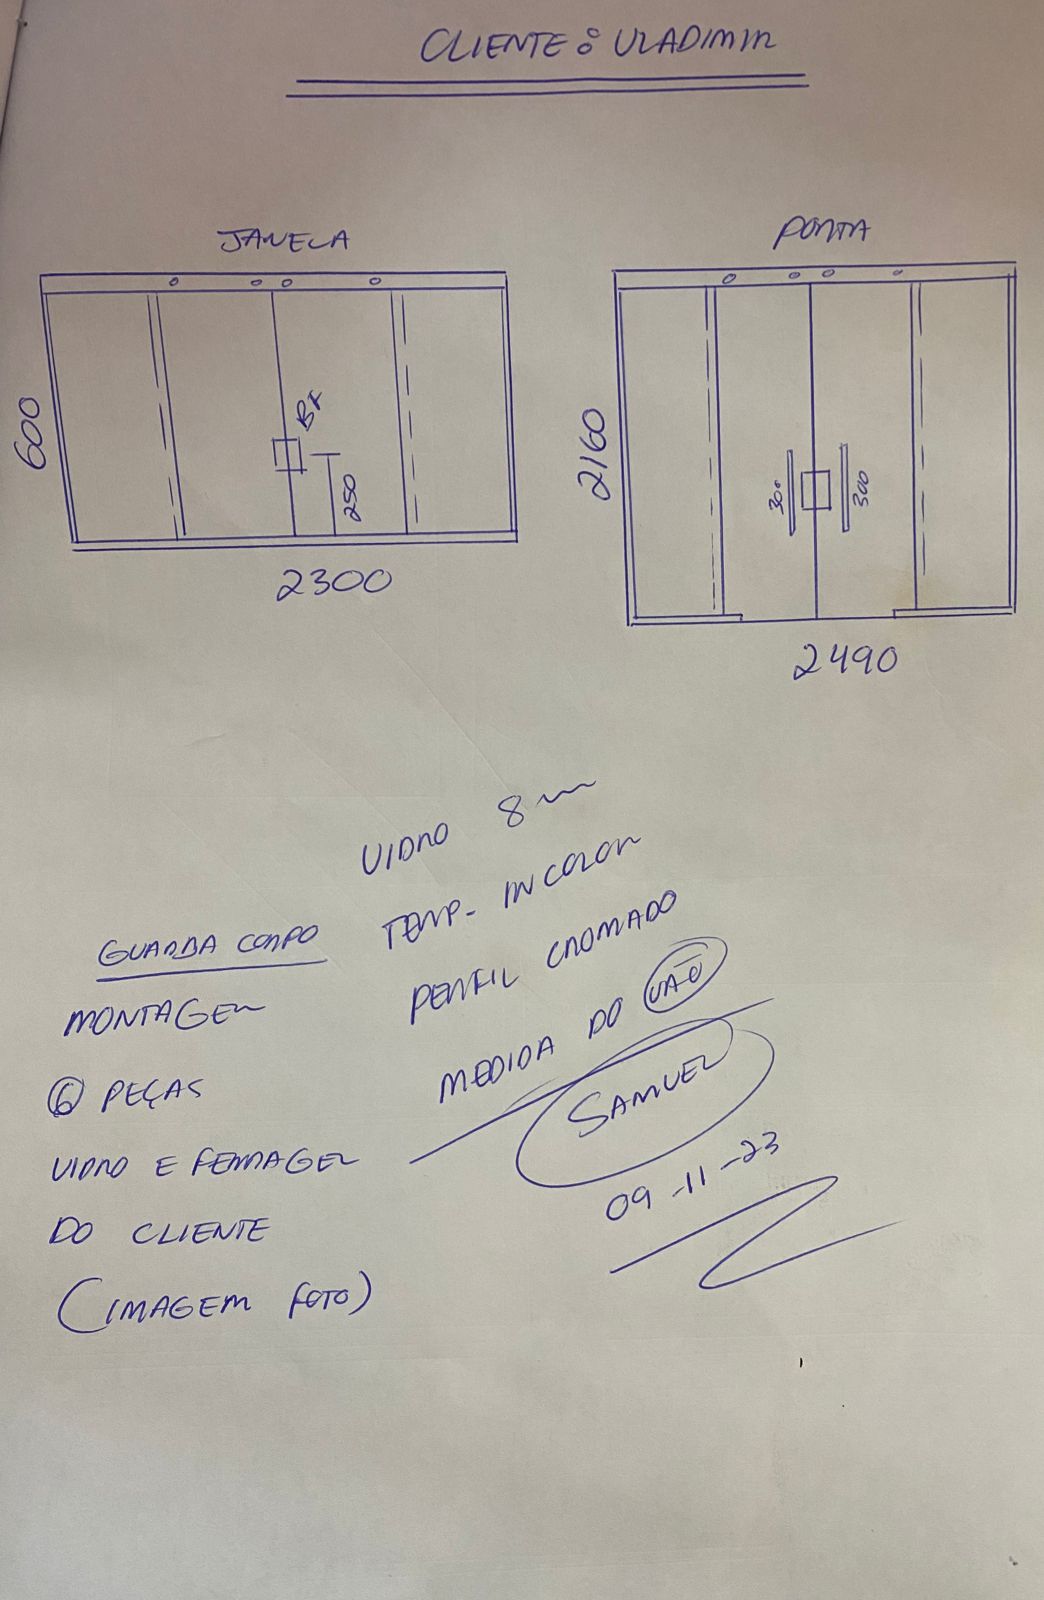 CLIENTE: VLADIMIR
JANELA
600
BX
250
2300
PORTA
2160
300
300
2490
VIDRO 8mm
TEMP- INCOLOR
PERFIL CROMADO
MEDIDA DO VÃO
SAMUEL
09-11-23
GUARDA CORPO
MONTAGEM
6 PEÇAS
VIDRO E FERRAGEM
DO CLIENTE
(IMAGEM FOTO)